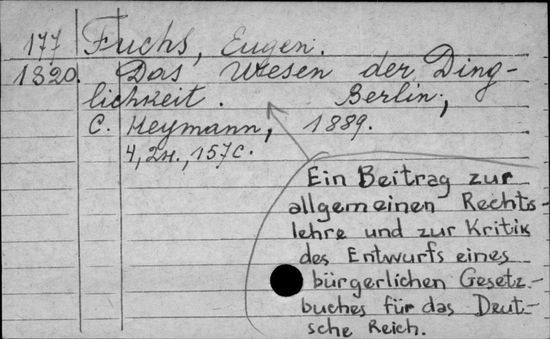 177 Fuchs, Eugen.
1320. Das Wesen der Ding-
lichkeit. Berlin,
C. Heymann, 1889.
4, 2н., 157с.
Ein Beitrag zur
allgemeinen Rechts-
lehre und zur Kritik
des Entwurfs eines
bürgerlichen Gesetz-
buches für das Deut-
sche Reich.